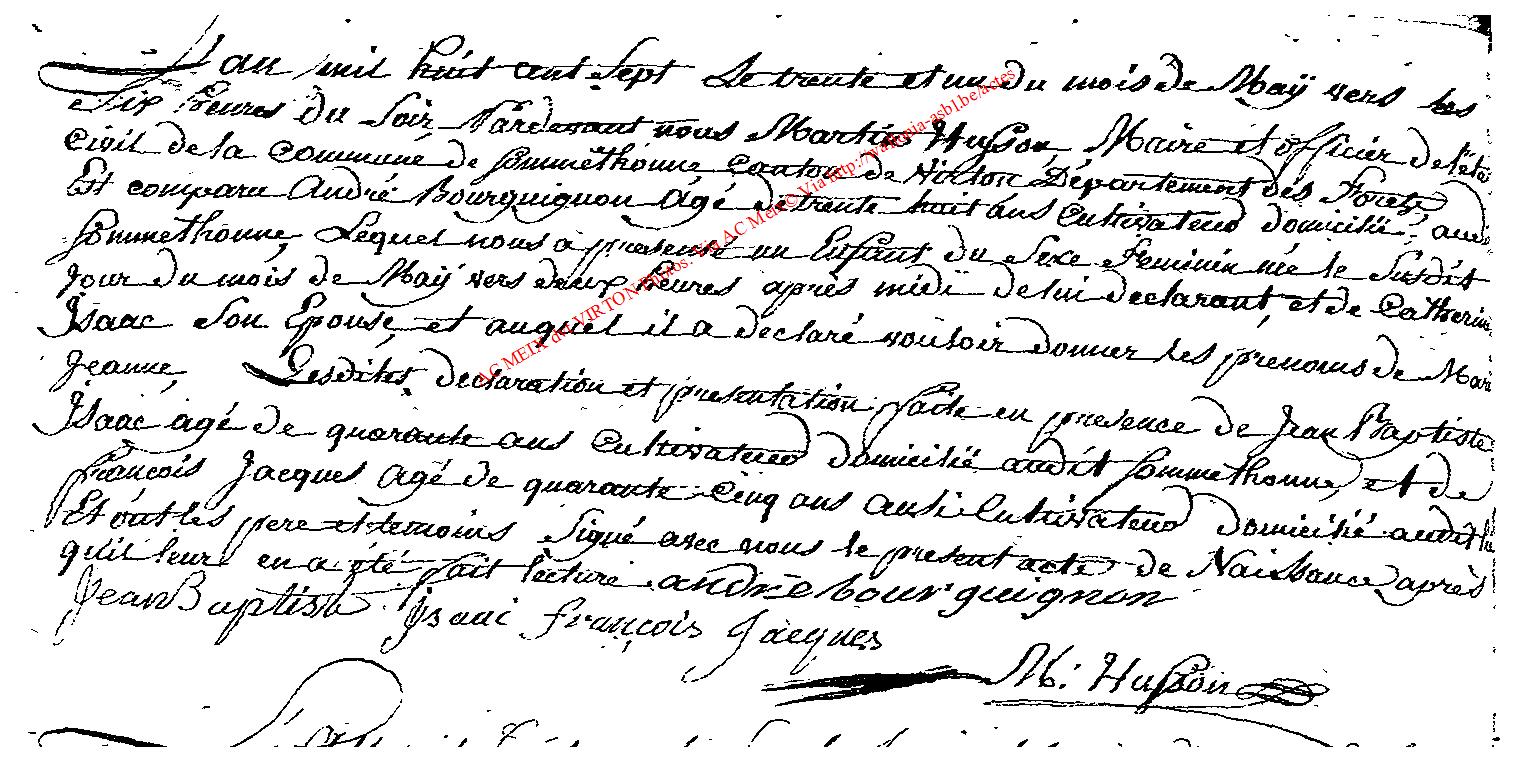 L'an mil huit cent Sept Le trente et un du mois de Maÿ vers les
Six heures du Soir Pardevant nous Martin Husson, Maire et officier de l'état
Civil de la Commune de Sommethonne Canton de Virton Département des Forets,
Est comparu André Bourguignon Agé de trente huit ans Cultivateur domicilié, audit
Sommethonne, Lequel nous a presenté un Enfant du Sexe Feminin née le Susdit
Jour du mois de Maÿ vers deux heures après midi de lui declarant, et de Catherine
Isaac Son Epouse, et auquel il a declaré vouloir donner les prenoms de Mari
Jeanne, Lesdites declaration et presentation faite en presence de Jean Baptiste
Isaac agé de quarante ans Cultivateur domicilié audit Sommethonne, et de
François Jacques Agé de quarante Cinq ans ausi Cultivateur domicilié audit lieu
Et ont les pere et temoins Signé avec nous le present acte de Naissance après
qu'il leur en a été fait lecture andré bourguignon
Jean Baptiste Isaac françois Jacques
M: Husson
AC MEIX dvt VIRTON Photos: Via AC Meix© Via http://wallonia-asbl.be/actes